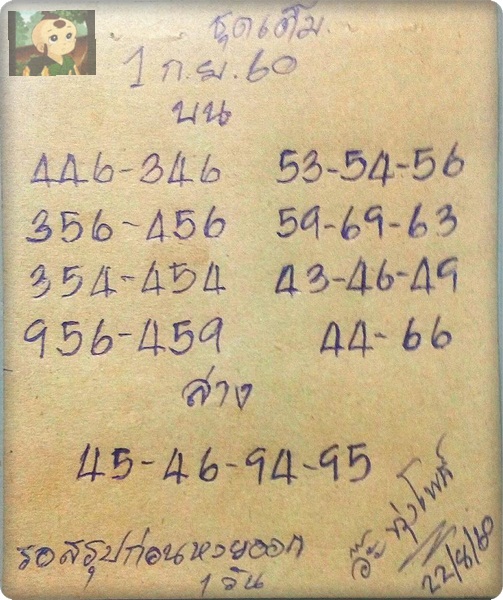 ชุดเต็ม
1 ก.ย. 60
บน
446-346 53-54-56
356-456 59-69-63
354-454 43-46-49
956-459 44-66
ล่าง
45-46-94-95
รอสรุปก่อนหวยออก
1 วัน
22/8/60